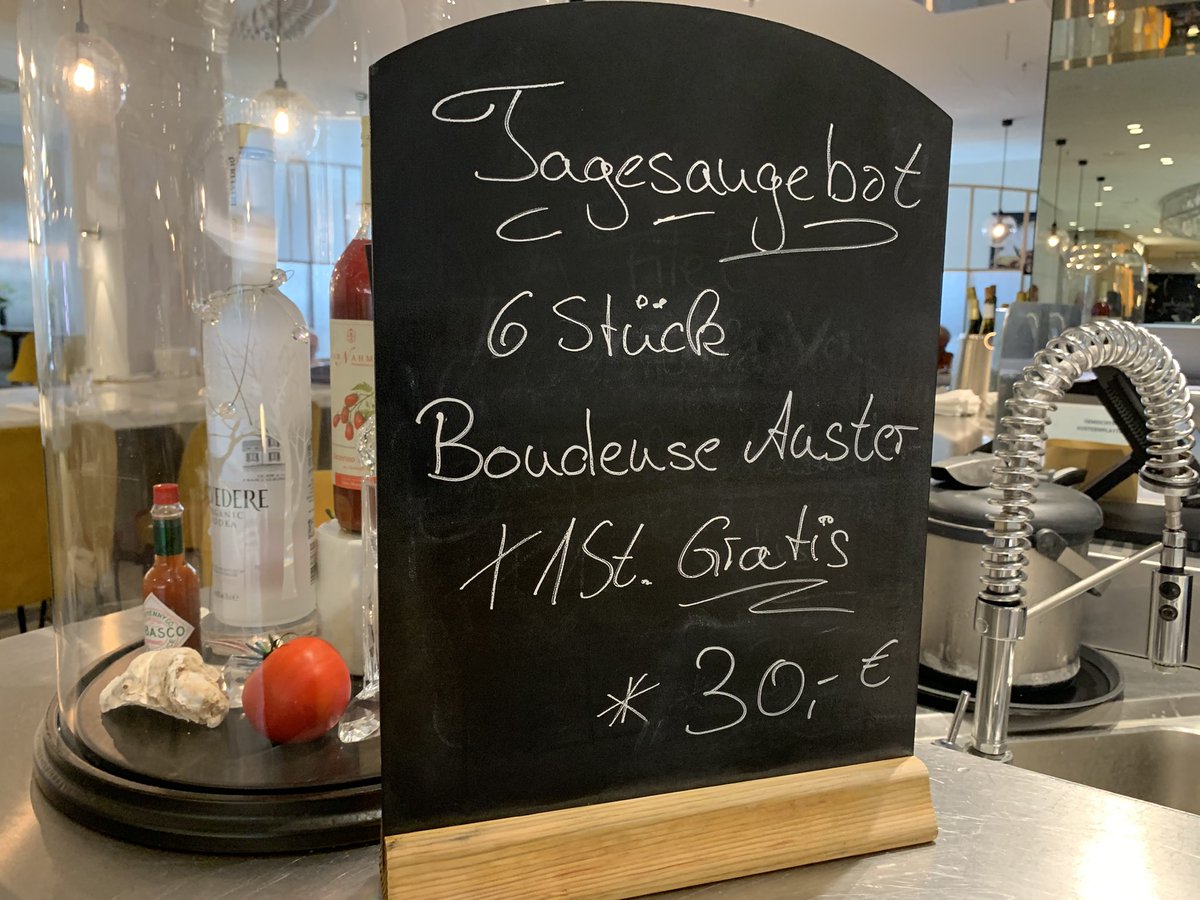 Tagesangebot
6 Stück
Boudeuse Auster
+ 1 St. Gratis
* 30,- €
VEDERE
GANIC
DKA
NAHM
BASCO